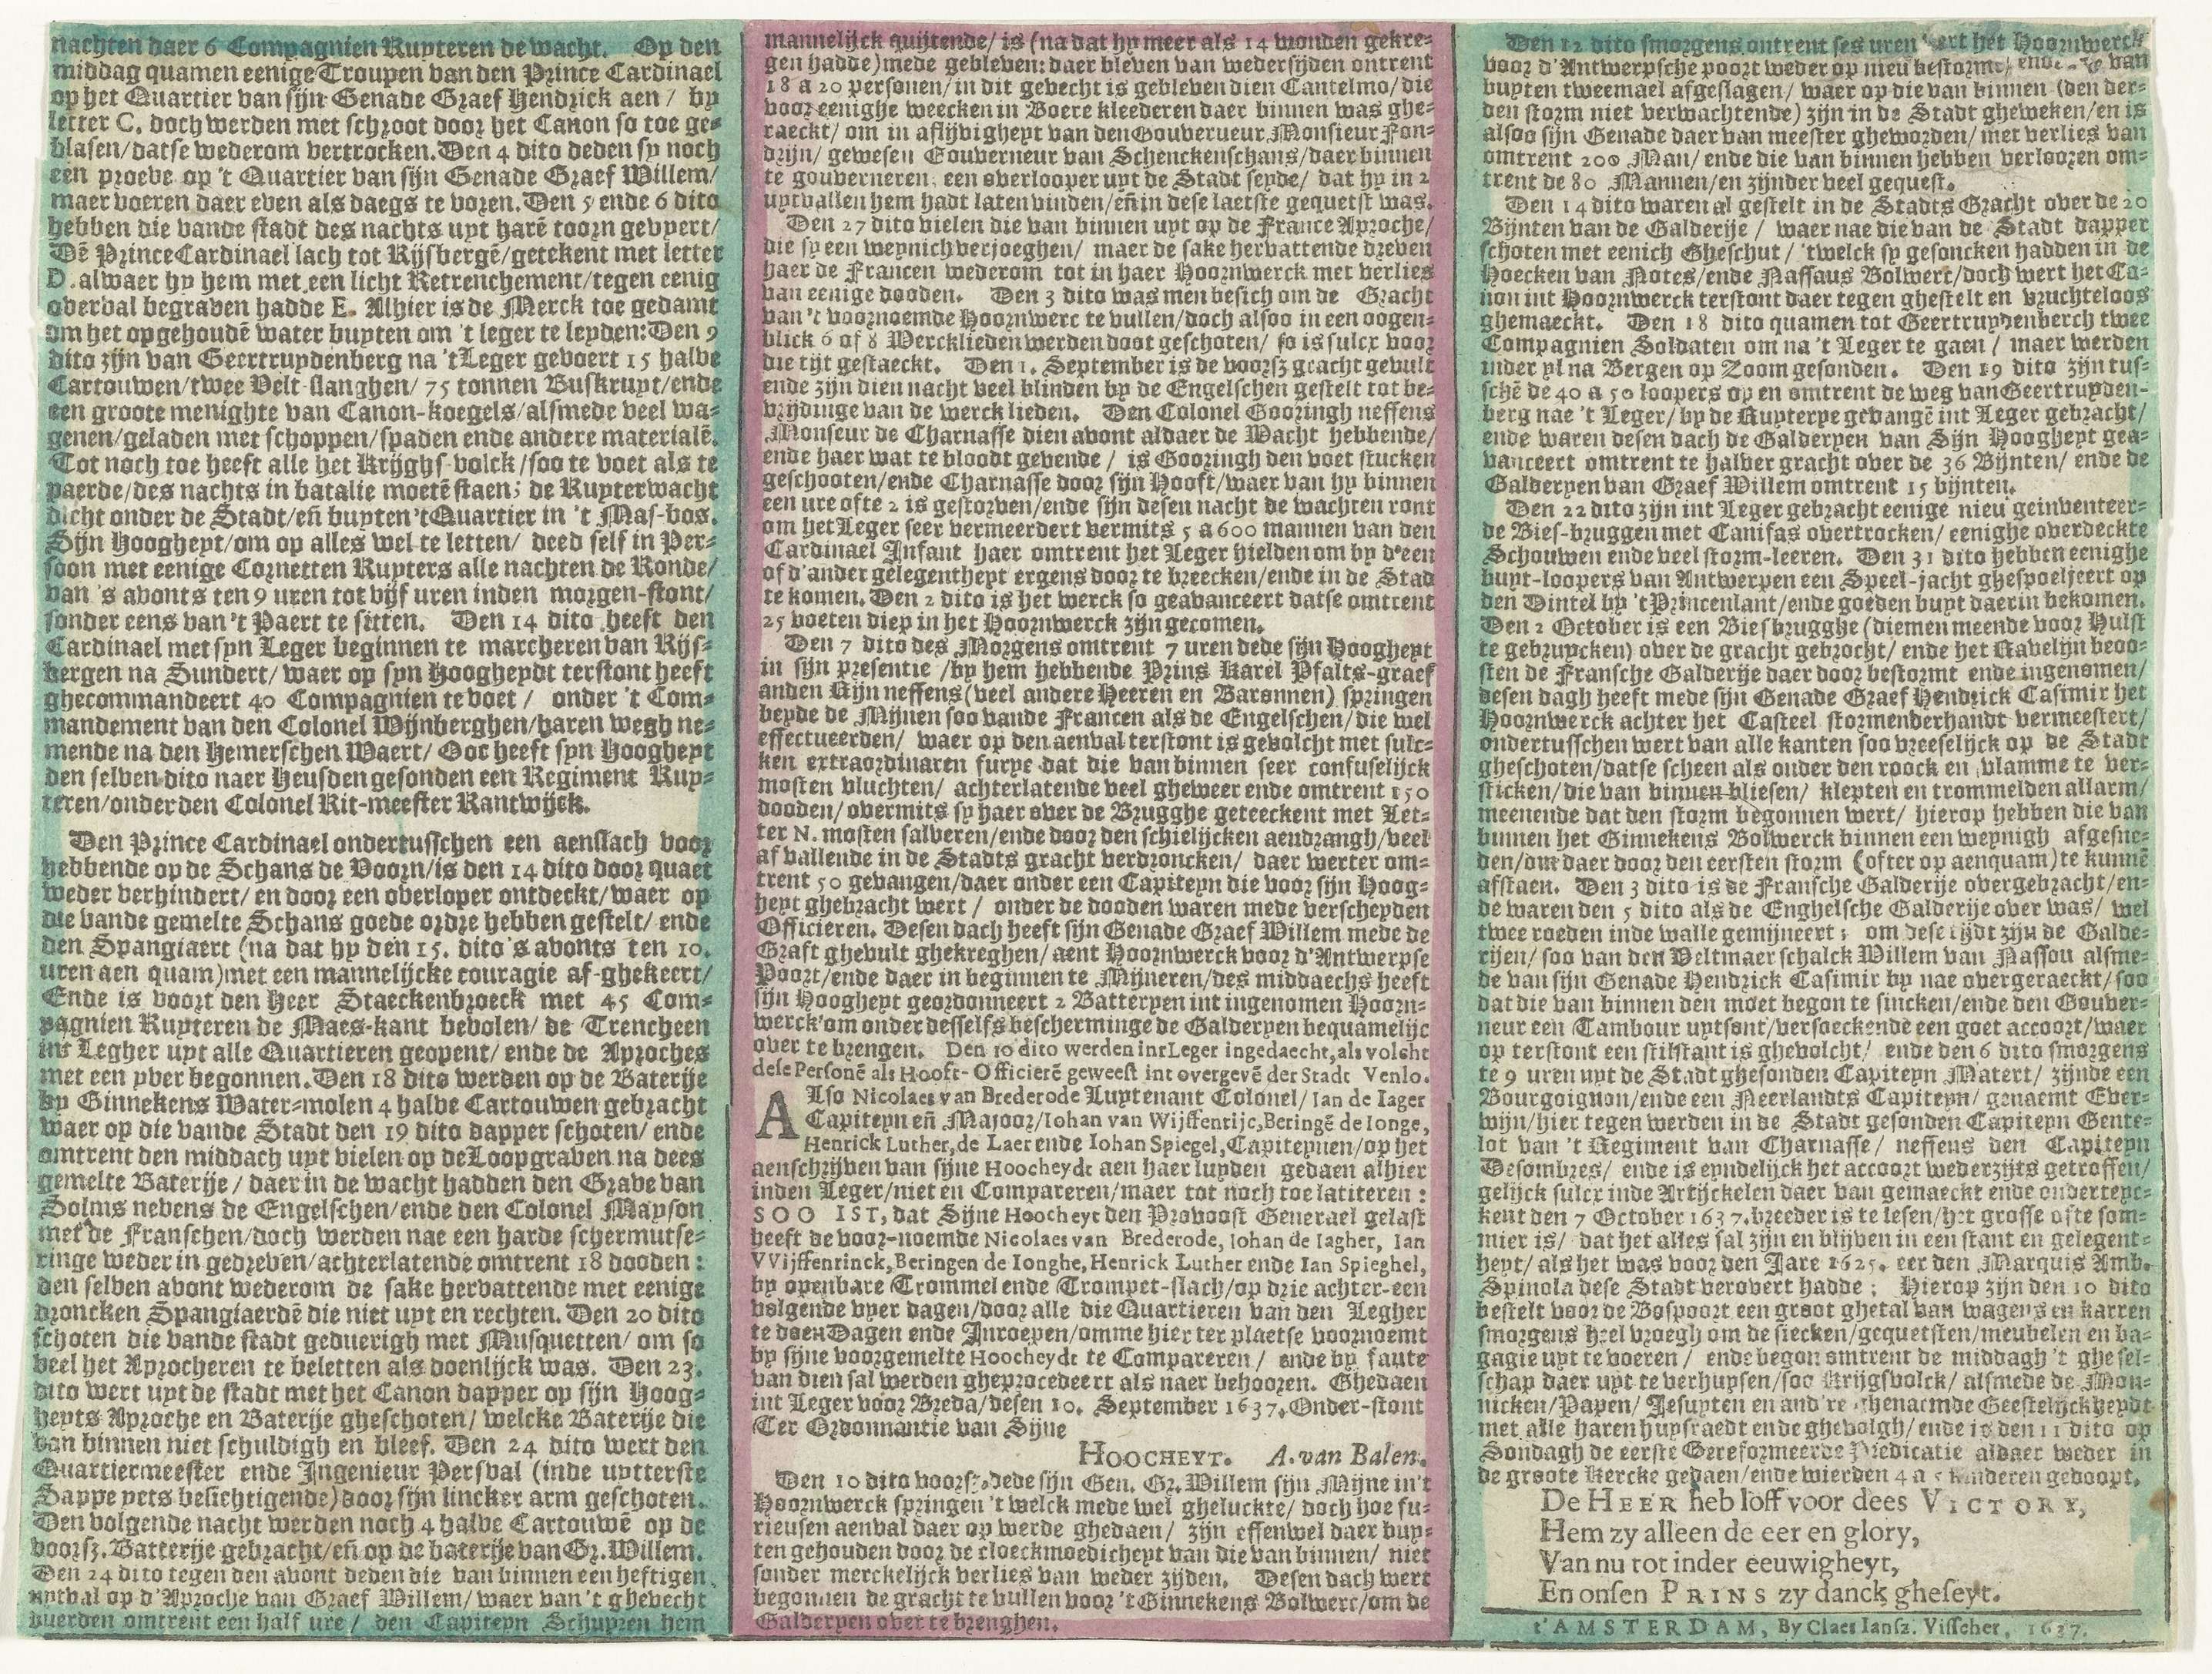 nachten daer 6 Compagnien Ruyteren de wacht. Op den
middag quamen eenige Troupen van den Prince Cardinael
op het Quartier van sijn Genade Graef Hendrick aen / by
letter C. doch werden met schroot door het Canon so toe ge-
blasen/datse wederom vertrocken. Den 4 dito deden sy noch
een proeve op 't Quartier van sijn Genade Graef Willem/
maer voeren daer even als daegs te voren. Den 5 ende 6 dito
hebben die vande stadt des nachts uyt harē toorn gevyert/
Dē Prince Cardinael lach tot Rijsbergē/getekent met letter
D. alwaer hy hem met een licht Retrenchement/tegen eenig
overval begraven hadde E. Alhier is de Merck toe gedamt
om het opgehoudē water buyten om 't leger te leyden: Den 9
dito zijn van Geertruydenberg na 't Leger gevoert 15 halve
Cartouwen/twee Velt-slanghen/ 75 tonnen Buskruyt/ende
een groote menighte van Canon-koegels/alsmede veel wa-
genen/geladen met schoppen/spaden ende andere materialē.
Tot noch toe heeft alle het Krijghs-volck/soo te voet als te
paerde/des nachts in batalie moetē staen; de Ruyterwacht
dicht onder de Stadt/eñ buyten 't Quartier in 't Mas-bos.
Sijn Hoogheyt/om op alles wel te letten/ deed self in Per-
soon met eenige Cornetten Ruyters alle nachten de Ronde/
van 's avonts ten 9 uren tot vijf uren inden morgen-stont/
sonder eens van 't Paert te sitten. Den 14 dito heeft den
Cardinael met syn Leger beginnen te marcheren van Rijs-
bergen na Sundert/ waer op syn Hoogheydt terstont heeft
ghecommandeert 40 Compagnien te voet / onder 't Com-
mandement van den Colonel Wijnberghen/haren wegh ne-
mende na den Hemerschen Waert/ Ooc heeft syn Hoogheyt
den selven dito naer Heusden gesonden een Regiment Ruy-
teren/onder den Colonel Rit-meester Rantwijck.
Den Prince Cardinael ondertusschen een aenslach voor
hebbende op de Schans de Voorn/is den 14 dito door quaet
weder verhindert/ en door een overloper ontdeckt/waer op
die vande gemelte Schans goede ordre hebben gestelt/ ende
den Spangiaert (na dat hy den 15. dito 's avonts ten 10.
uren aen quam) met een mannelijcke couragie af-ghekeert/
Ende is voort den Heer Staeckenbroeck met 45 Com-
pagnien Ruyteren de Maes-kant bevolen/ de Trencheen
int Legher uyt alle Quartieren geopent/ ende de Aproches
met een yver begonnen. Den 18 dito werden op de Baterije
by Ginnekens Water-molen 4 halve Cartouwen gebracht
waer op die vande Stadt den 19 dito dapper schoten/ ende
omtrent den middach uyt vielen op de Loopgraven na dees
gemelte Baterije / daer in de wacht hadden den Grave van
Solms nevens de Engelschen/ende den Colonel Mayson
met de Franschen/doch werden nae een harde schermutse-
ringe weder in gedreven/achterlatende omtrent 18 dooden:
den selven avont wederom de sake hervattende met eenige
droncken Spangiaerdē die niet uyt en rechten. Den 20 dito
schoten die vande stadt geduerigh met Musquetten/ om so
veel het Aprocheren te beletten als doenlijck was. Den 23.
dito wert uyt de stadt met het Canon dapper op sijn Hoog-
heyts Aproche en Baterije gheschoten/ welcke Baterije die
van binnen niet schuldigh en bleef. Den 24 dito wert den
Quartiermeester ende Ingenieur Persval (inde uytterste
Sappe yets besichtigende) door sijn lincker arm geschoten.
Den volgende nacht werden noch 4 halve Cartouwē op de
voorsz. Batterije gebracht/eñ op de baterije van Gr. Willem.
Den 24 dito tegen den avont deden die van binnen een heftigen
uytval op d'Aproche van Graef Willem/ waer van 't ghevecht
duerden omtrent een half ure / den Capiteyn Schuyren hem
mannelijck quijtende/ is (na dat hy meer als 14 wonden gekre-
gen hadde) mede gebleven: daer bleven van wedersijden ontrent
18 a 20 personen/in dit gevecht is gebleven dien Cantelmo/die
voor eenighe weecken in Boere kleederen daer binnen was ghe-
raeckt/ om in aflijvigheyt van den Gouverueur Monsieur Fon-
drijn/ gewesen Gouverneur van Schenckenschans/daer binnen
te gouverneren; een overlooper uyt de Stadt seyde/ dat hy in 2
uytvallen hem hadt laten vinden/eñ in dese laetste gequetst was.
Den 27 dito vielen die van binnen uyt op de France Aproche/
die sy een weynich verjoeghen/ maer de sake hervattende dreven
haer de Francen wederom tot in haer Hoornwerck met verlies
van eenige dooden. Den 3 dito was men besich om de Gracht
van 't voornoemde Hoornwerc te vullen/doch alsoo in een oogen-
blick 6 of 8 Wercklieden werden doot geschoten/ so is sulcx voor
die tijt gestaeckt. Den 1. September is de voorsz gracht gevult
ende zijn dien nacht veel blinden by de Engelschen gestelt tot be-
vrijdinge van de werck lieden. Den Colonel Gooringh neffens
Monseur de Charnasse dien avont aldaer de Wacht hebbende/
ende haer wat te bloodt gevende / is Gooringh den voet stucken
geschooten/ende Charnasse door sijn Hooft/waer van hy binnen
een ure ofte 2 is gestorven/ende sijn desen nacht de wachten ront
om het Leger seer vermeerdert vermits 5 a 600 mannen van den
Cardinael Infant haer omtrent het Leger hielden om by d'een
of d'ander gelegentheyt ergens door te breecken/ende in de Stad
te komen. Den 2 dito is het werck so geavanceert datse omtrent
25 voeten diep in het Hoornwerck zijn gecomen.
Den 7 dito des Morgens omtrent 7 uren dede sijn Hoogheyt
in sijn presentie /by hem hebbende Prins Karel Pfalts-graef
anden Rijn neffens (veel andere Heeren en Baronnen) springen
beyde de Mijnen soo vande Francen als de Engelschen/die wel
effectueerden/ waer op den aenval terstont is gevolcht met sulc-
ken extraordinaren furye dat die van binnen seer confuselijck
mosten vluchten/ achterlatende veel gheweer ende omtrent 150
dooden/ overmits sy haer over de Brugghe geteeckent met Let-
ter N. mosten salveren/ende door den schielijcken aendrangh/veel
af vallende in de Stadts gracht verdroncken/ daer werter om-
trent 50 gevangen/daer onder een Capiteyn die voor sijn Hoog-
heyt ghebracht wert / onder de dooden waren mede verscheyden
Officieren. Desen dach heeft sijn Genade Graef Willem mede de
Graft ghevult ghekreghen/ aent Hoornwerck voor d'Antwerpse
Poort/ende daer in beginnen te Mijneren/des middaechs heeft
sijn Hoogheyt geordonneert 2 Batteryen int ingenomen Hoorn-
werck om onder desselfs bescherminge de Galderyen bequamelijc
over te brengen. Den 10 dito werden int Leger ingedaecht, als volcht
dese Personē als Hooft-Officierē geweest int overgevē der Stadt Venlo.
Also Nicolaes van Brederode Luytenant Colonel/ Ian de Iager
Capiteyn eñ Majoor/Iohan van Wijffenrijc, Beringē de Ionge,
Henrick Luther, de Laer ende Iohan Spiegel, Capiteynen/op het
aenschrijven van sijne Hoocheydt aen haer luyden gedaen alhier
inden Leger/niet en Compareren/maer tot noch toe latiteren:
SOO IST, dat Sijne Hoocheyt den Provoost Generael gelast
heeft de voor-noemde Nicolaes van Brederode, Iohan de Iagher, Ian
VVijffenrinck, Beringen de Ionghe, Henrick Luther ende Ian Spieghel,
by openbare Trommel ende Trompet-slach/op drie achter-een
volgende vyer dagen/door alle die Quartieren van den Legher
te doen Dagen ende Inroepen/omme hier ter plaetse voornoemt
by sijne voorgemelte Hoocheydt te Compareren/ ende by faute
van dien sal werden gheprocedeert als naer behooren. Ghedaen
int Leger voor Breda/desen 10. September 1637. Onder-stont
Ter Ordonnantie van Sijne
HOOCHEYT. A. van Balen.
Den 10 dito voorsz. dede sijn Gen. Gr. Willem sijn Mijne in't
Hoornwerck springen 't welck mede wel gheluckte/ doch hoe fu-
rieusen aenval daer op werde ghedaen/ zijn effenwel daer buy-
ten gehouden door de cloeckmoedicheyt van die van binnen/ niet
sonder merckelijck verlies van weder zijden. Desen dach wert
begonnen de gracht te vullen voor 't Ginnekens Bolwerc/om de
Galderyen over te brenghen.
Den 12 dito smorgens ontrent ses uren wert het Hoornwerck
voor d'Antwerpsche poort weder op nieu bestormt, ende van
buyten tweemael afgeslagen/ waer op die van binnen (den der-
den storm niet verwachtende) zijn in de Stadt gheweken/en is
alsoo sijn Genade daer van meester gheworden/ met verlies van
omtrent 200 Man/ ende die van binnen hebben verlooren om-
trent de 80 Mannen/en zijnder veel gequest.
Den 14 dito waren al gestelt in de Stadts Gracht over de 20
Bijnten van de Galderije / waer nae die van de Stadt dapper
schoten met eenich Gheschut/ 'twelck sy gesoncken hadden in de
Hoecken van Notes/ende Nassaus Bolwert/doch wert het Ca-
non int Hoornwerck terstont daer tegen ghestelt en vruchteloos
ghemaeckt. Den 18 dito quamen tot Geertruydenberch twee
Compagnien Soldaten om na 't Leger te gaen / maer werden
inder yl na Bergen op Zoom gesonden. Den 19 dito zijn tus-
schē de 40 a 50 loopers op en omtrent de weg van Geertruyden-
berg nae 't Leger/ by de Ruyterye gevangē int Leger gebracht/
ende waren desen dach de Galderyen van Sijn Hoogheyt gea-
vanceert omtrent te halver gracht over de 36 Bijnten/ ende de
Galderyen van Graef Willem omtrent 15 bijnten.
Den 22 dito zijn int Leger gebracht eenige nieu geinventeer-
de Bies-bruggen met Canifas overtrocken/ eenighe overdeckte
Schouwen ende veel storm-leeren. Den 31 dito hebben eenighe
buyt-loopers van Antwerpen een Speel-jacht ghespoeljeert op
den Dintel by 't Princenlant/ende goeden buyt daer in bekomen.
Den 2 October is een Biesbrugghe (diemen meende voor Hulst
te gebruycken) over de gracht gebrocht/ ende het Ravelijn beoo-
sten de Fransche Galderije daer door bestormt ende ingenomen/
desen dagh heeft mede sijn Genade Graef Hendrick Casimir het
Hoornwerck achter het Casteel stormenderhandt vermeestert/
ondertusschen wert van alle kanten soo vreeselijck op de Stadt
gheschoten/datse scheen als onder den roock en vlamme te ver-
sticken/die van binnen bliesen/ klepten en trommelden allarm/
meenende dat den storm begonnen wert/ hierop hebben die van
binnen het Ginnekens Bolwerck binnen een weynigh afgesne-
den/om daer door den eersten storm (ofter op aenquam) te kunnē
afstaen. Den 3 dito is de Fransche Galderije overgebracht/en-
de waren den 5 dito als de Enghelsche Galderije over was/ wel
twee roeden inde walle gemijneert; om dese tijdt zijn de Galde-
rijen/ soo van den Veltmaerschalck Willem van Nassou alsme-
de van sijn Genade Hendrick Casimir by nae overgeraeckt/soo
dat die van binnen den moet begon te sincken/ende den Gouver-
neur een Tambour uytsont/versoeckende een goet accoort/waer
op terstont een stilstant is ghevolcht/ ende den 6 dito smorgens
te 9 uren uyt de Stadt ghesonden Capiteyn Matert/ zijnde een
Bourgoignon/ende een Neerlandts Capiteyn/ genaemt Ever-
wijn/hier tegen werden in de Stadt gesonden Capiteyn Gente-
lot van 't Regiment van Charnasse/ neffens den Capiteyn
Desombres/ ende is eyndelijck het accoort wederzijts getroffen/
gelijck sulcx inde Artijckelen daer van gemaeckt ende onderteyc-
kent den 7 October 1637. breeder is te lesen/het grosse ofte som-
mier is/ dat het alles sal zijn en blijven in een stant en gelegent-
heyt/ als het was voor den Jare 1625. eer den Marquis Amb.
Spinola dese Stadt verovert hadde; Hierop zijn den 10 dito
bestelt voor de Bospoort een groot ghetal van wagens en karren
smorgens heel vroegh om de siecken/gequetsten/meubelen en ba-
gagie uyt te voeren / ende begon omtrent de middagh 't ghesel-
schap daer uyt te verhuysen/soo Krijgsvolck/ alsmede de Mon-
nicken/Papen/ Jesuyten en and're ghenaemde Geestelijckheydt
met alle haren huysraedt ende ghevolgh/ ende is den 11 dito op
Sondagh de eerste Gereformeerde Predicatie aldaer weder in
de groote Kercke gedaen/ende wierden 4 a 5 kinderen gedoopt.
De HEER heb loff voor dees VICTORY,
Hem zy alleen de eer en glory,
Van nu tot inder eeuwigheyt,
En onsen PRINS zy danck gheseyt.
t'AMSTERDAM, By Claes Iansz. Visscher, 1637.